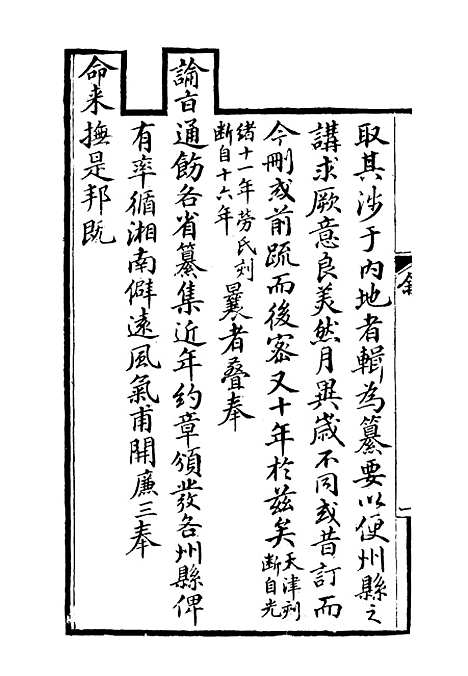 取其涉于內地者輯為纂要以便州縣之
講求厥意良美然月異歲不同或昔訂而
今刪或前疏而後密又十年於茲矣天津刻
斷自光
緒十一年勞氏刻
斷自十六年曩者疊奉
諭旨通飭各省纂集近年約章頒發各州縣俾
有率循湘南僻遠風氣甫開廉三奉
命来撫是邦既
敘
一